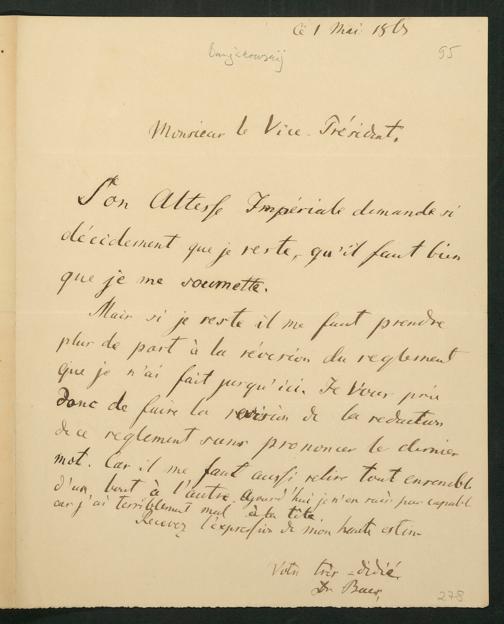 Ce 1 Mai 186
95
Monsieur le Vice-Président,
Son Altesse Impériale demande si
décidement que je reste, qu'il faut bien
que je me soumette.
Mais si je reste il me faut prendre
plus de part à la révision du reglement
que je n'ai fait jusqu'ici. Je Vous prie
donc de faire la revision de la redaction
de ce reglement sans prononcer le dernier
mot. Car il me faut aussi relire tout ensemble
d'un bout à l'autre. Aujourd'hui je n'en suis pas capable
car j'ai terriblement mal à la tête.
Recevez l'expression de mon haute estime
Votre très-dédié
Dr Baer,
278